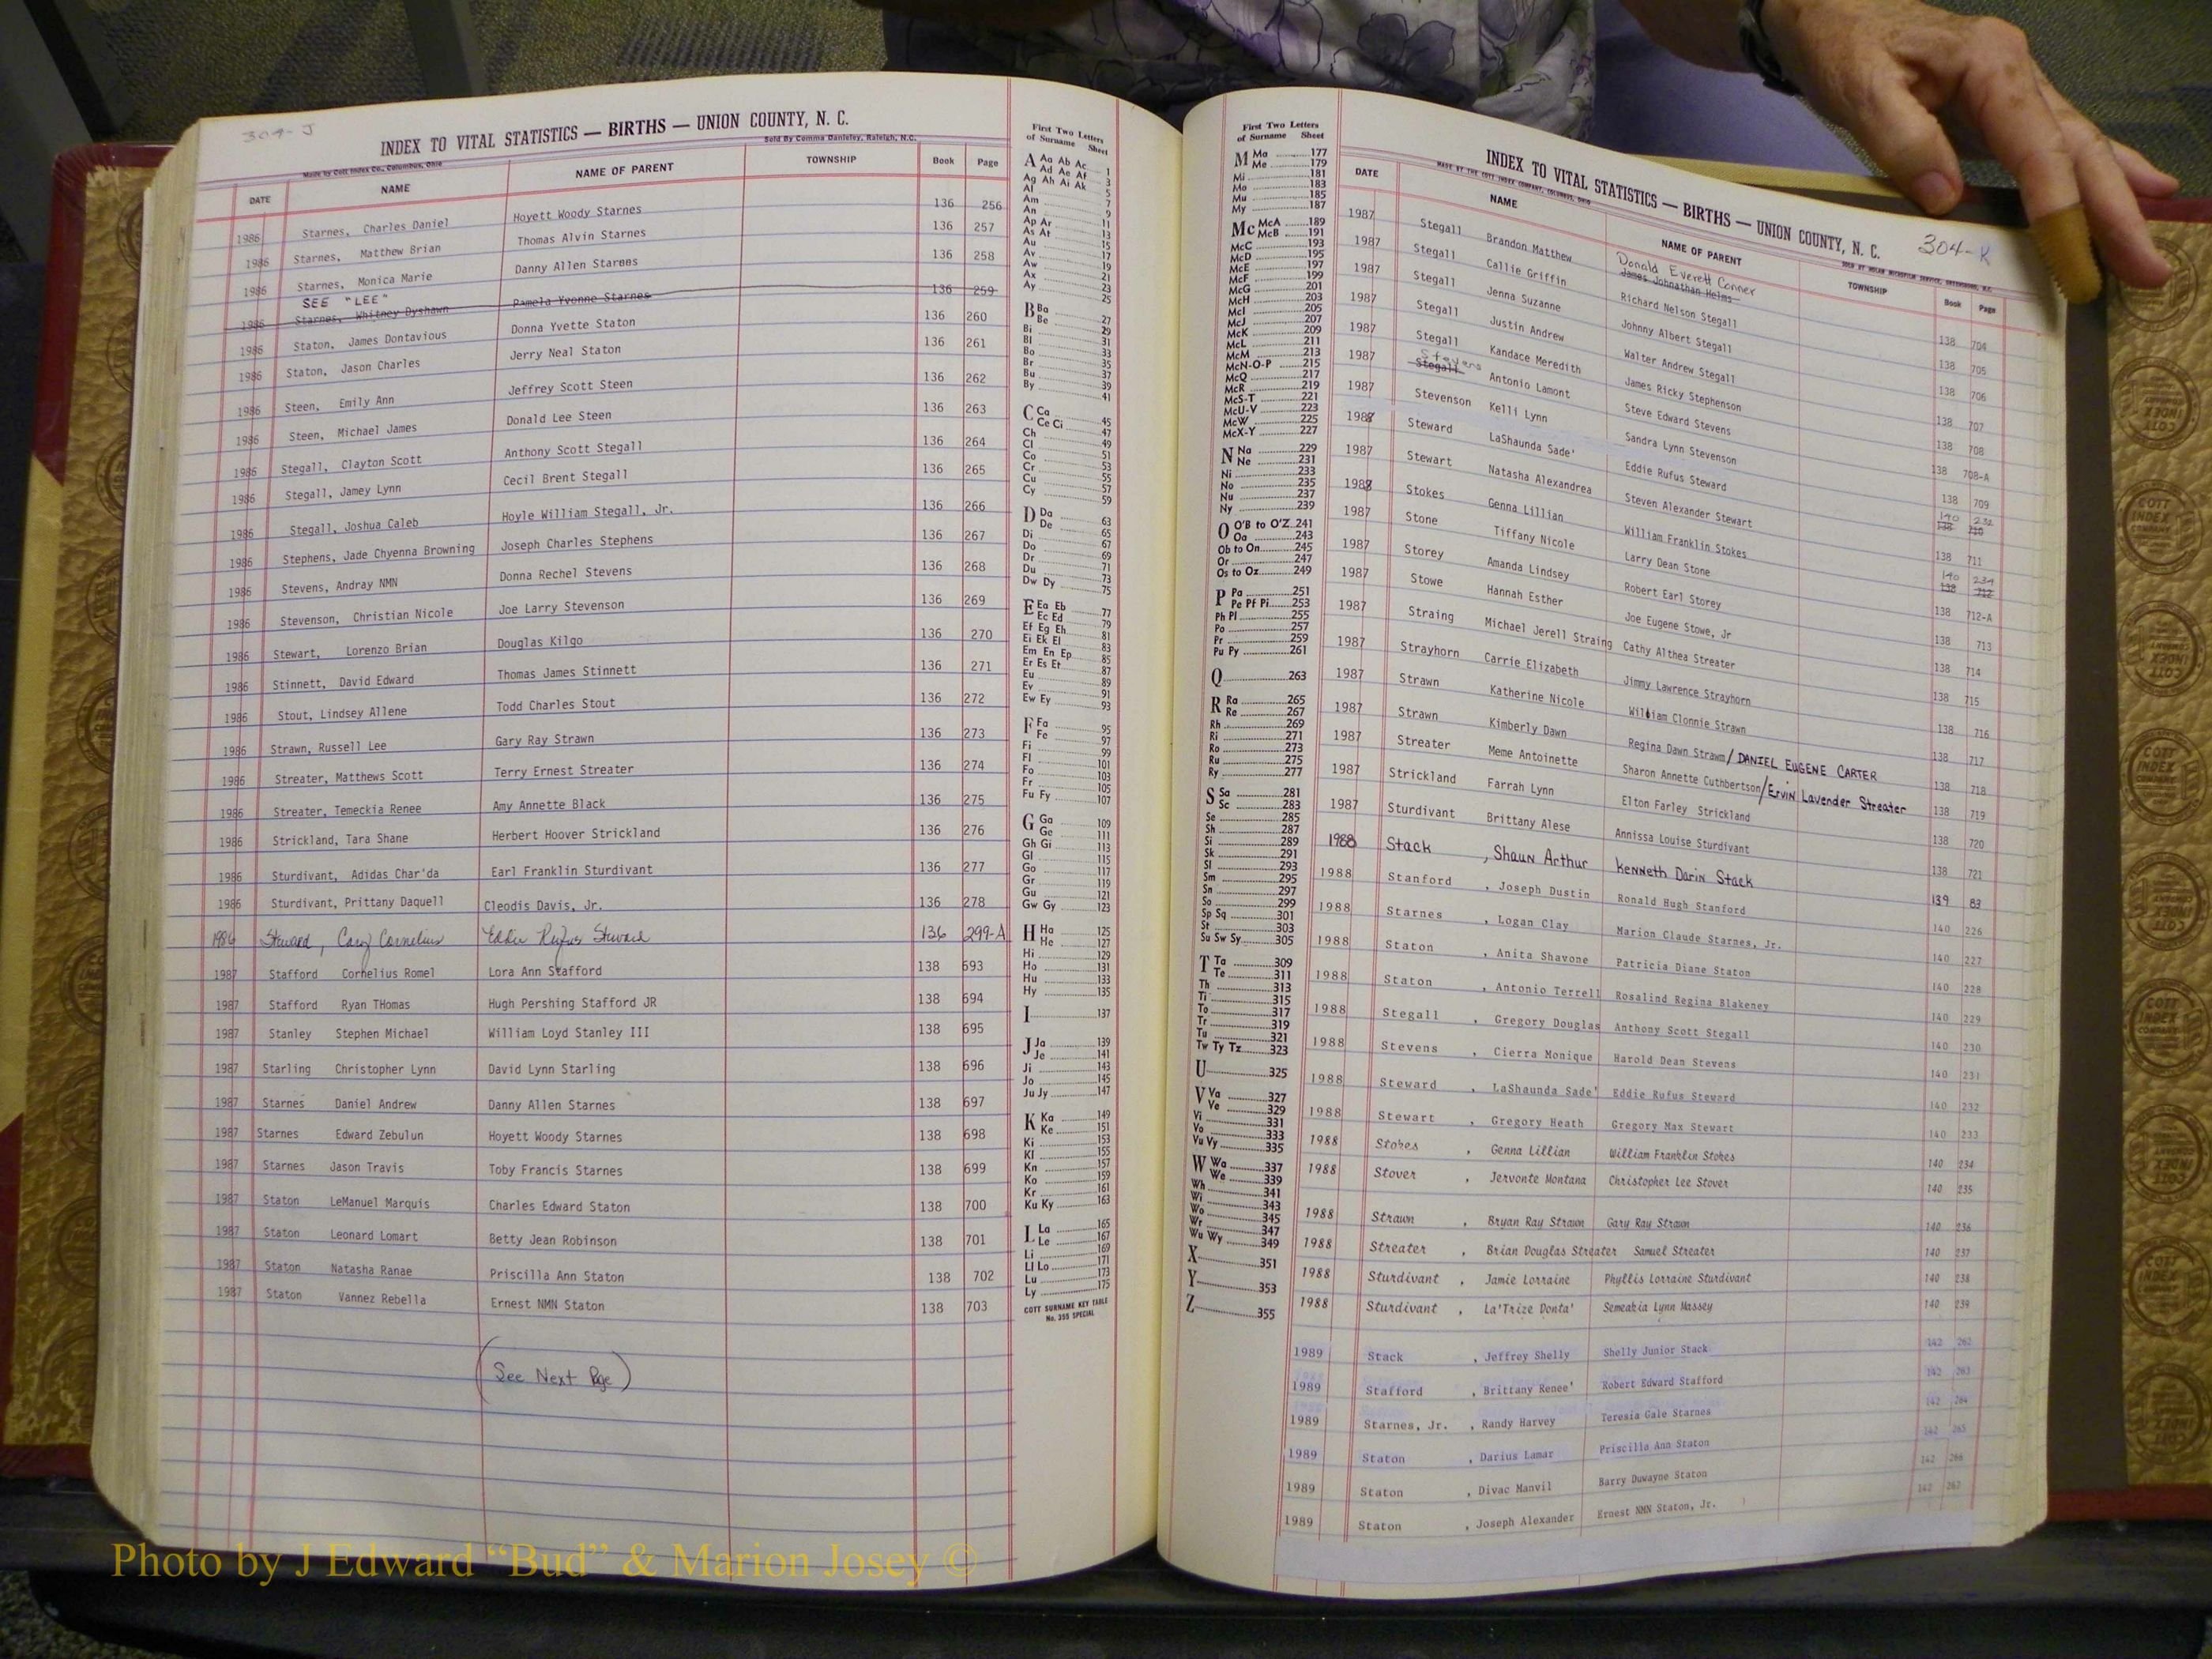 304-J
INDEX TO VITAL STATISTICS — BIRTHS — UNION COUNTY, N. C.
Made by Cott Index Co., Columbus, Ohio
Sold By Comma Danieley, Raleigh, N.C.
DATE NAME NAME OF PARENT TOWNSHIP Book Page
1986 Starnes, Charles Daniel Hoyett Woody Starnes 136 256
1986 Starnes, Matthew Brian Thomas Alvin Starnes 136 257
1986 Starnes, Monica Marie Danny Allen Starnes 136 258
SEE "LEE"
1986 Starnes, Whitney Dyshawn Pamela Yvonne Starnes 136 259
1986 Staton, James Dontavious Donna Yvette Staton 136 260
1986 Staton, Jason Charles Jerry Neal Staton 136 261
1986 Steen, Emily Ann Jeffrey Scott Steen 136 262
1986 Steen, Michael James Donald Lee Steen 136 263
1986 Stegall, Clayton Scott Anthony Scott Stegall 136 264
1986 Stegall, Jamey Lynn Cecil Brent Stegall 136 265
1986 Stegall, Joshua Caleb Hoyle William Stegall, Jr. 136 266
1986 Stephens, Jade Chyenna Browning Joseph Charles Stephens 136 267
1986 Stevens, Andray NMN Donna Rechel Stevens 136 268
1986 Stevenson, Christian Nicole Joe Larry Stevenson 136 269
1986 Stewart, Lorenzo Brian Douglas Kilgo 136 270
1986 Stinnett, David Edward Thomas James Stinnett 136 271
1986 Stout, Lindsey Allene Todd Charles Stout 136 272
1986 Strawn, Russell Lee Gary Ray Strawn 136 273
1986 Streater, Matthews Scott Terry Ernest Streater 136 274
1986 Streater, Temeckia Renee Amy Annette Black 136 275
1986 Strickland, Tara Shane Herbert Hoover Strickland 136 276
1986 Sturdivant, Adidas Char'da Earl Franklin Sturdivant 136 277
1986 Sturdivant, Prittany Daquell Cleodis Davis, Jr. 136 278
1986 Steward, Cornelius Eddie Rufus Steward 136 299-A
1987 Stafford Cornelius Romel Lora Ann Stafford 138 693
1987 Stafford Ryan THomas Hugh Pershing Stafford JR 138 694
1987 Stanley Stephen Michael William Loyd Stanley III 138 695
1987 Starling Christopher Lynn David Lynn Starling 138 696
1987 Starnes Daniel Andrew Danny Allen Starnes 138 697
1987 Starnes Edward Zebulun Hoyett Woody Starnes 138 698
1987 Starnes Jason Travis Toby Francis Starnes 138 699
1987 Staton LeManuel Marquis Charles Edward Staton 138 700
1987 Staton Leonard Lomart Betty Jean Robinson 138 701
1987 Staton Natasha Ranae Priscilla Ann Staton 138 702
1987 Staton Vannez Rebella Ernest NMN Staton 138 703
(See Next Page)
First Two Letters
of Surname Sheet
A Aa Ab Ac 1
Ad Ae Af 3
Ag Ah Ai Ak 5
Al 7
Am 9
An 11
Ap Ar 13
As At 15
Au 17
Av 19
Aw 21
Ax 23
Ay 25
B Ba 27
Be 29
Bi 31
Bl 33
Bo 35
Br 37
Bu 39
By 41
C Ca 45
Ce Ci 47
Ch 49
Cl 51
Co 53
Cr 55
Cu 57
Cy 59
D Da 63
De 65
Di 67
Do 69
Dr 71
Du 73
Dw Dy 75
E Ea Eb 77
Ec Ed 79
Ef Eg Eh 81
Ei Ek El 83
Em En Ep 85
Er Es Et 87
Eu 89
Ev 91
Ew Ey 93
F Fa 95
Fe 97
Fi 99
Fl 101
Fo 103
Fr 105
Fu Fy 107
G Ga 109
Ge 111
Gh Gi 113
Gl 115
Go 117
Gr 119
Gu 121
Gw Gy 123
H Ha 125
He 127
Hi 129
Ho 131
Hu 133
Hy 135
I 137
J Ja 139
Je 141
Ji 143
Jo 145
Ju Jy 147
K Ka 149
Ke 151
Ki 153
Kl 155
Kn 157
Ko 159
Kr 161
Ku Ky 163
L La 165
Le 167
Li 169
Ll Lo 171
Lu 173
Ly 175
COTT SURNAME KEY TABLE
No. 355 SPECIAL
First Two Letters
of Surname Sheet
M Ma 177
Me 179
Mi 181
Mo 183
Mu 185
My 187
Mc McA 189
McB 191
McC 193
McD 195
McE 197
McF 199
McG 201
McH 203
McI 205
McJ 207
McK 209
McL 211
McM 213
McN-O-P 215
McQ 217
McR 219
McS-T 221
McU-V 223
McW 225
McX-Y 227
N Na 229
Ne 231
Ni 233
No 235
Nu 237
Ny 239
O O'B to O'Z 241
Oa 243
Ob to On 245
Or 247
Os to Oz 249
P Pa 251
Pe Pf Pi 253
Ph Pl 255
Po 257
Pr 259
Pu Py 261
Q 263
R Ra 265
Re 267
Rh 269
Ri 271
Ro 273
Ru 275
Ry 277
S Sa 281
Sc 283
Se 285
Sh 287
Si 289
Sk 291
Sl 293
Sm 295
Sn 297
So 299
Sp Sq 301
St 303
Su Sw Sy 305
T Ta 309
Te 311
Th 313
Ti 315
To 317
Tr 319
Tu 321
Tw Ty Tz 323
U 325
V Va 327
Ve 329
Vi 331
Vo 333
Vu Vy 335
W Wa 337
We 339
Wh 341
Wi 343
Wo 345
Wr 347
Wu Wy 349
X 351
Y 353
Z 355
INDEX TO VITAL STATISTICS — BIRTHS — UNION COUNTY, N. C.
304-K
MADE BY THE COTT INDEX COMPANY, COLUMBUS, OHIO
DATE NAME NAME OF PARENT TOWNSHIP Book Page
Donald Everett Conner
1987 Stegall Brandon Matthew James Johnathan Helms 138 704
1987 Stegall Callie Griffin Richard Nelson Stegall 138 705
1987 Stegall Jenna Suzanne Johnny Albert Stegall 138 706
1987 Stegall Justin Andrew Walter Andrew Stegall 138 707
1987 Stegall Kandace Meredith James Ricky Stephenson 138 708
Stevens
1987 Stegall Antonio Lamont Steve Edward Stevens 138 708-A
1987 Stevenson Kelli Lynn Sandra Lynn Stevenson 138 709
140 232
1988 Steward LaShaunda Sade' Eddie Rufus Steward 138 710
1987 Stewart Natasha Alexandrea Steven Alexander Stewart 138 711
140 234
1988 Stokes Genna Lillian William Franklin Stokes 138 712
1987 Stone Tiffany Nicole Larry Dean Stone 138 712-A
1987 Storey Amanda Lindsey Robert Earl Storey 138 713
1987 Stowe Hannah Esther Joe Eugene Stowe, Jr 138 714
1987 Straing Michael Jerell Straing Cathy Althea Streater 138 715
1987 Strayhorn Carrie Elizabeth Jimmy Lawrence Strayhorn 138 716
1987 Strawn Katherine Nicole William Clonnie Strawn 138 717
1987 Strawn Kimberly Dawn Regina Dawn Strawn/DANIEL EUGENE CARTER 138 718
1987 Streater Meme Antoinette Sharon Annette Cuthbertson/Ervin Lavender Streater 138 719
1987 Strickland Farrah Lynn Elton Farley Strickland 138 720
1987 Sturdivant Brittany Alese Annissa Louise Sturdivant 138 721
1988 Stack , Shaun Arthur Kenneth Darin Stack 139 83
1988 Stanford , Joseph Dustin Ronald Hugh Stanford 140 226
1988 Starnes , Logan Clay Marion Claude Starnes, Jr. 140 227
1988 Staton , Anita Shavone Patricia Diane Staton 140 228
1988 Staton , Antonio Terrell Rosalind Regina Blakeney 140 229
1988 Stegall , Gregory Douglas Anthony Scott Stegall 140 230
1988 Stevens , Cierra Monique Harold Dean Stevens 140 231
1988 Steward , LaShaunda Sade' Eddie Rufus Steward 140 232
1988 Stewart , Gregory Heath Gregory Max Stewart 140 233
1988 Stokes , Genna Lillian William Franklin Stokes 140 234
1988 Stover , Jervonte Montana Christopher Lee Stover 140 235
1988 Strawn , Bryan Ray Strawn Gary Ray Strawn 140 236
1988 Streater , Brian Douglas Streater Samuel Streater 140 237
1988 Sturdivant , Jamie Lorraine Phyllis Lorraine Sturdivant 140 238
1988 Sturdivant , La'Trize Donta' Semeakia Lynn Massey 140 239
1989 Stack , Jeffrey Shelly Shelly Junior Stack 142 262
1989 Stafford , Brittany Renee' Robert Edward Stafford 142 263
1989 Starnes, Jr. , Randy Harvey Teresia Gale Starnes 142 264
1989 Staton , Darius Lamar Priscilla Ann Staton 142 265
1989 Staton , Divac Manvil Barry Duwayne Staton 142 266
1989 Staton , Joseph Alexander Ernest NMN Staton, Jr. 142 267
COTT
INDEX
COMPANY
Photo by J Edward “Bud” & Marion Josey ©